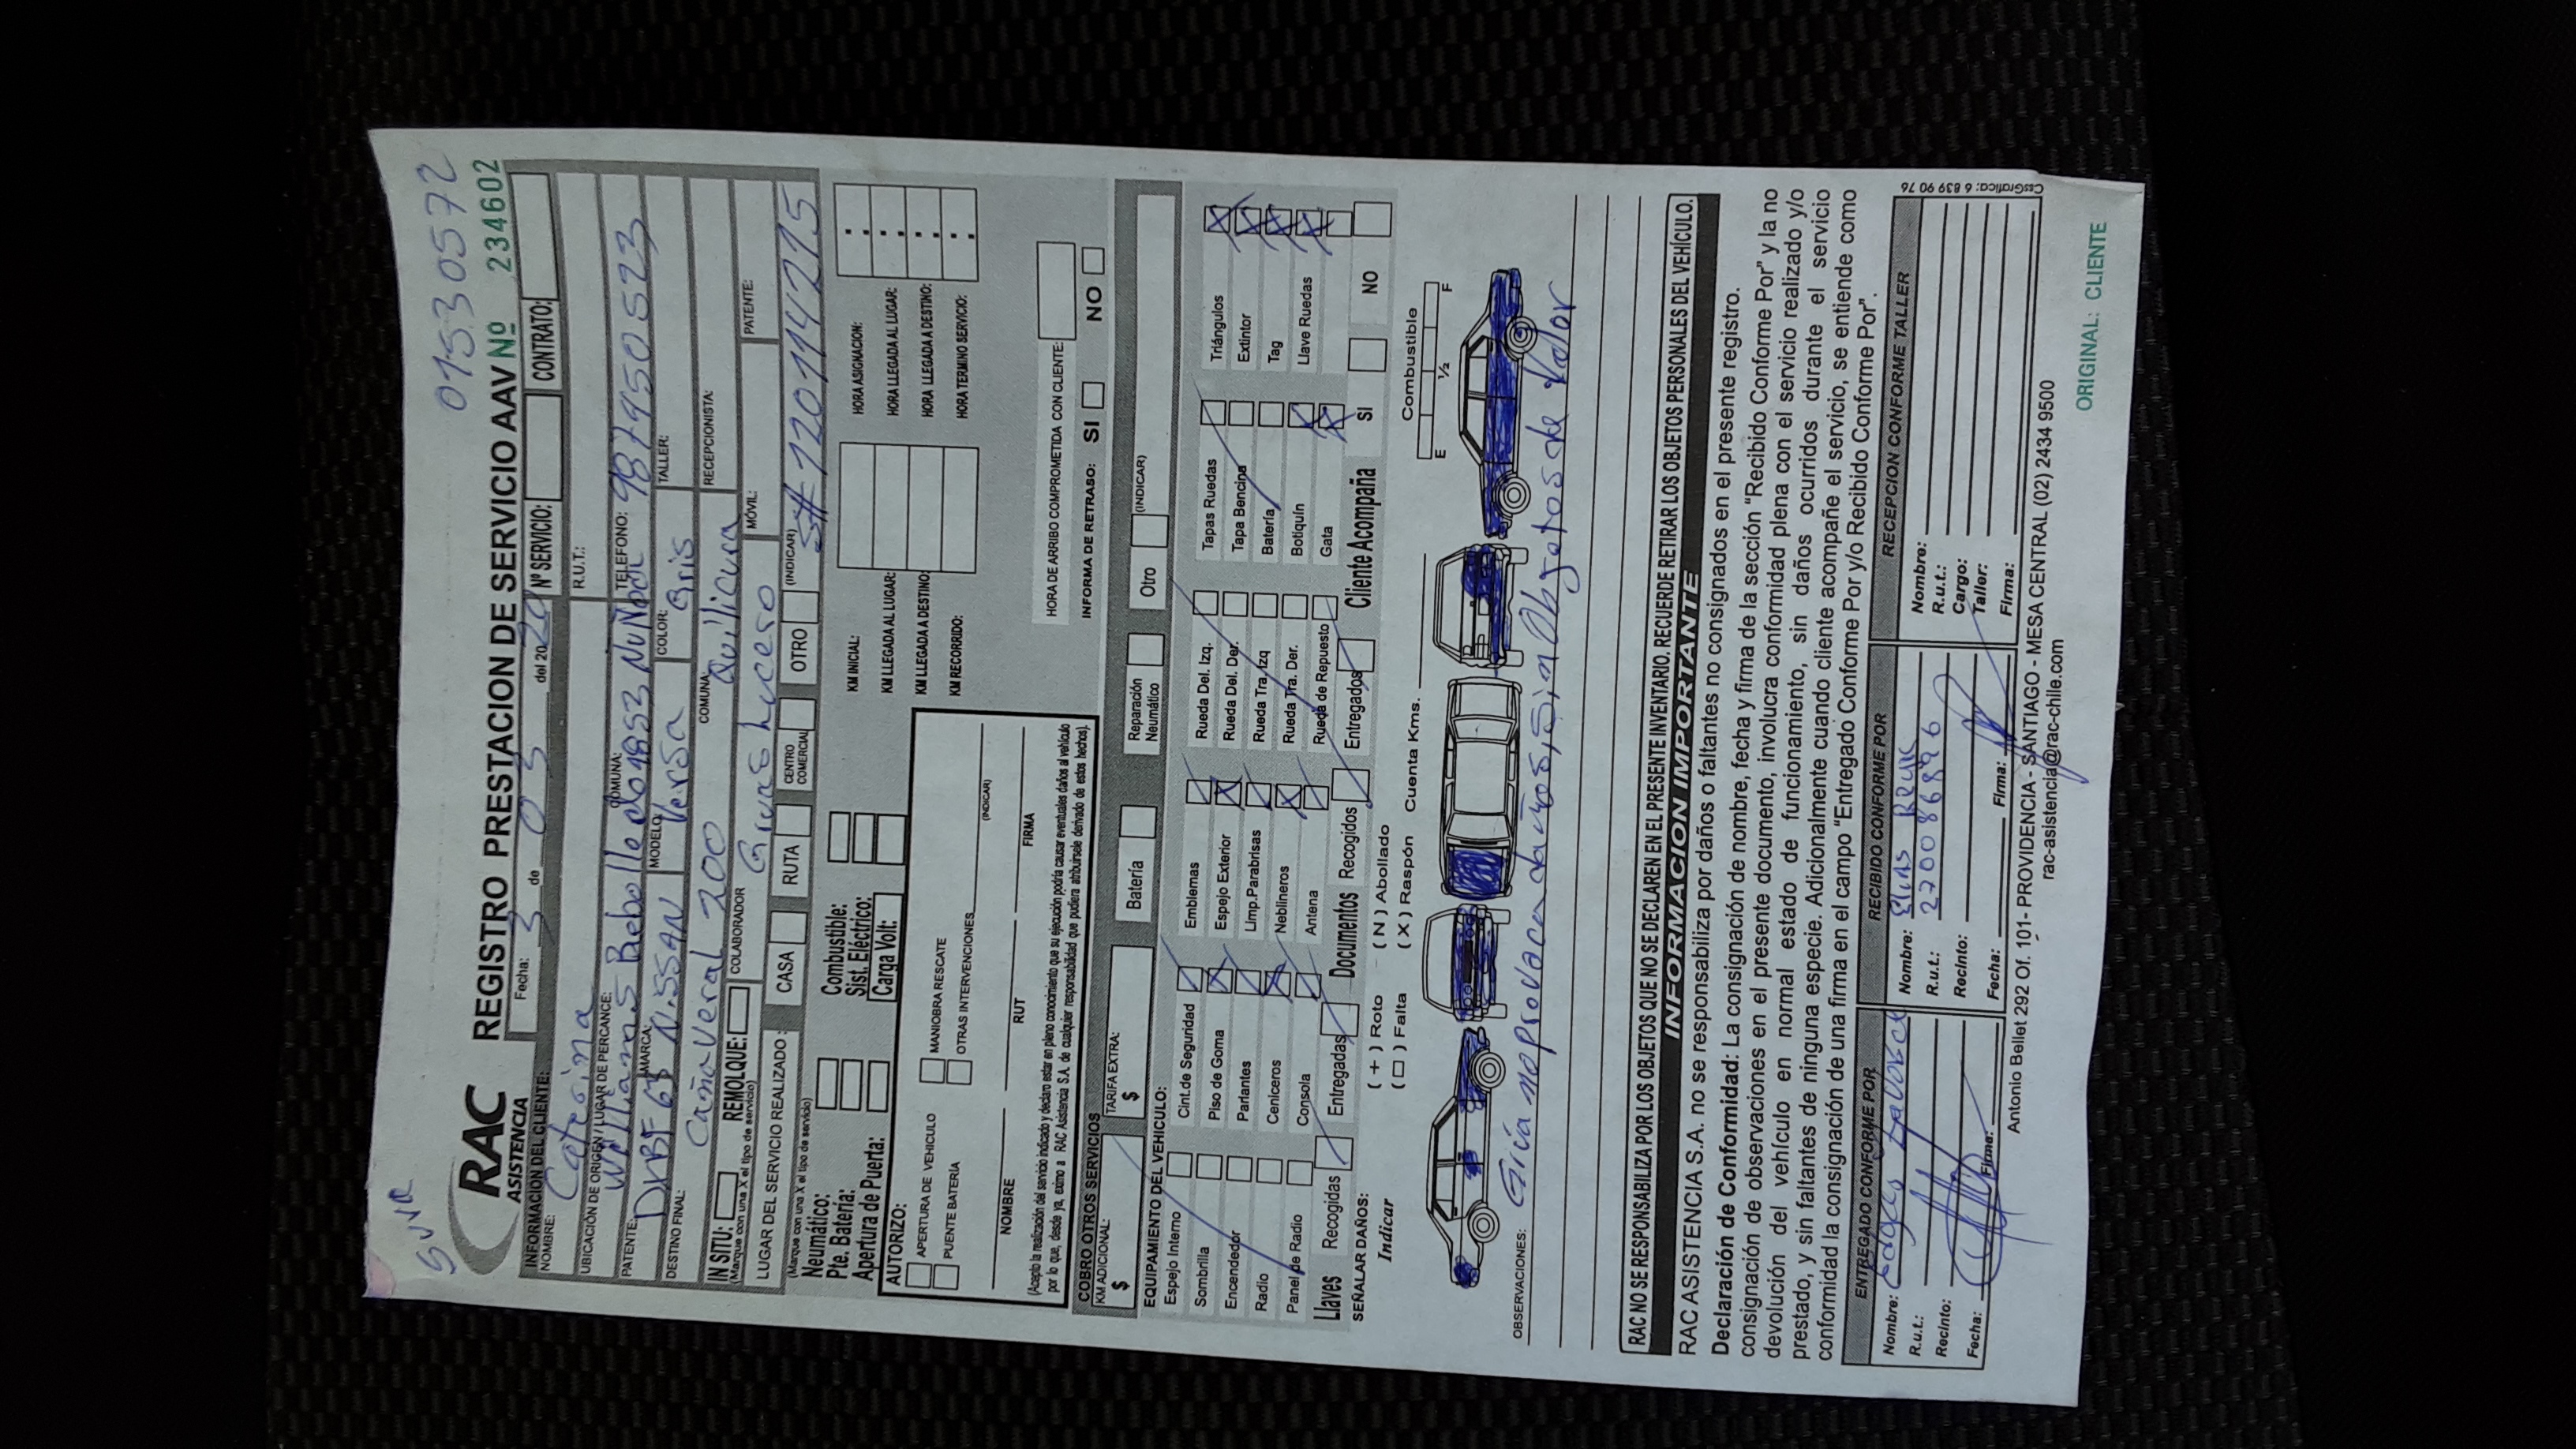 SUVA
01530572
RAC
ASISTENCIA
REGISTRO PRESTACION DE SERVICIO AAV Nº 234602
INFORMACION DEL CLIENTE:
Fecha: 3 de 03 del 20
Nº SERVICIO:
CONTRATO:
NOMBRE: Caterina
R.U.T.:
UBICACIÓN DE ORIGEN / LUGAR DE PERCANCE: Williams Rebolledo 1852
COMUNA: Nuñoa
TELEFONO: 987950523
PATENTE: DXBF 63
MARCA: Nissan
MODELO: Versa
COLOR: Gris
TALLER:
DESTINO FINAL: Cañaveral 200
COMUNA: Quilicura
RECEPCIONISTA:
IN SITU:
REMOLQUE:
(Marque con una X el tipo de servicio)
COLABORADOR Gruas Lucero
MÓVIL:
PATENTE:
LUGAR DEL SERVICIO REALIZADO:
(Marque con una X el tipo de servicio)
CASA
RUTA
CENTRO COMERCIAL
OTRO
(INDICAR)
Neumático:
Pte. Batería:
Apertura de Puerta:
Combustible:
Sist. Eléctrico:
Carga Volt:
KM INICIAL:
KM LLEGADA AL LUGAR:
KM LLEGADA A DESTINO:
KM RECORRIDO:
HORA ASIGNACION:
HORA LLEGADA AL LUGAR:
HORA LLEGADA A DESTINO:
HORA TERMINO SERVICIO:
AUTORIZO:
APERTURA DE VEHICULO
MANIOBRA RESCATE
PUENTE BATERÍA
OTRAS INTERVENCIONES
(INDICAR)
NOMBRE
RUT
FIRMA
(Acepto la realización del servicio indicado y declaro estar en pleno conocimiento que su ejecución podría causar eventuales daños al vehículo
por lo que, desde ya, eximo a RAC Asistencia S.A. de cualquier responsabilidad que pudiera atribuírsele derivado de estos hechos).
HORA DE ARRIBO COMPROMETIDA CON CLIENTE:
INFORMA DE RETRASO: SI NO
COBRO OTROS SERVICIOS
KM ADICIONAL:
$
TARIFA EXTRA:
$
Batería
Reparación Neumático
Otro
(INDICAR)
EQUIPAMIENTO DEL VEHICULO:
Espejo Interno
Cint.de Seguridad
Emblemas
Rueda Del. Izq.
Tapas Ruedas
Triángulos
Sombrilla
Piso de Goma
Espejo Exterior
Rueda Del. Der.
Tapa Bencina
Extintor
Encendedor
Parlantes
Limp.Parabrisas
Rueda Tra. Izq
Batería
Tag
Radio
Ceniceros
Neblineros
Rueda Tra. Der.
Botiquín
Llave Ruedas
Panel de Radio
Consola
Antena
Rueda de Repuesto
Gata
Llaves Recogidas Entregadas
Documentos Recogidos Entregados
Cliente Acompaña SI NO
SEÑALAR DAÑOS:
Indicar
( + ) Roto
( N ) Abollado
( □ ) Falta
( X ) Raspón
Cuenta Kms.
Combustible
E ½ F
OBSERVACIONES: Grúa no provoca daños, sin Objetos de Valor
RAC NO SE RESPONSABILIZA POR LOS OBJETOS QUE NO SE DECLAREN EN EL PRESENTE INVENTARIO. RECUERDE RETIRAR LOS OBJETOS PERSONALES DEL VEHÍCULO.
INFORMACION IMPORTANTE
RAC ASISTENCIA S.A. no se responsabiliza por daños o faltantes no consignados en el presente registro.
Declaración de Conformidad: La consignación de nombre, fecha y firma de la sección "Recibido Conforme Por" y la no
consignación de observaciones en el presente documento, involucra conformidad plena con el servicio realizado y/o
devolución del vehículo en normal estado de funcionamiento, sin daños ocurridos durante el servicio
prestado, y sin faltantes de ninguna especie. Adicionalmente cuando cliente acompañe el servicio, se entiende como
conformidad la consignación de una firma en el campo "Entregado Conforme Por y/o Recibido Conforme Por".
ENTREGADO CONFORME POR
RECIBIDO CONFORME POR
RECEPCION CONFORME TALLER
Nombre:
R.u.t.:
Recinto:
Fecha:
Firma:
Nombre: Elias Reyes
R.u.t.: 220086896
Recinto:
Fecha:
Firma:
Nombre:
R.u.t.:
Cargo:
Taller:
Firma:
Antonio Bellet 292 Of. 101- PROVIDENCIA - SANTIAGO - MESA CENTRAL (02) 2434 9500
rac-asistencia@rac-chile.com
CssGrafica: 6 839 90 76
ORIGINAL: CLIENTE